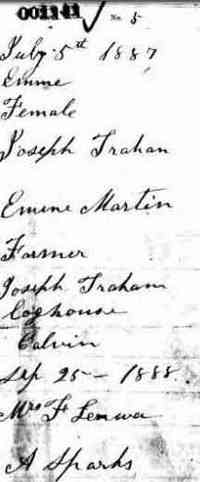 001141 No. 5
July 5st 1887
Emme
Female
Joseph Trahan
Emene Martin
Farmer
Joseph Traham
Loghouse
Calvin
Sep 25 - 1888.
Mrs F Lenwa
A Sparks